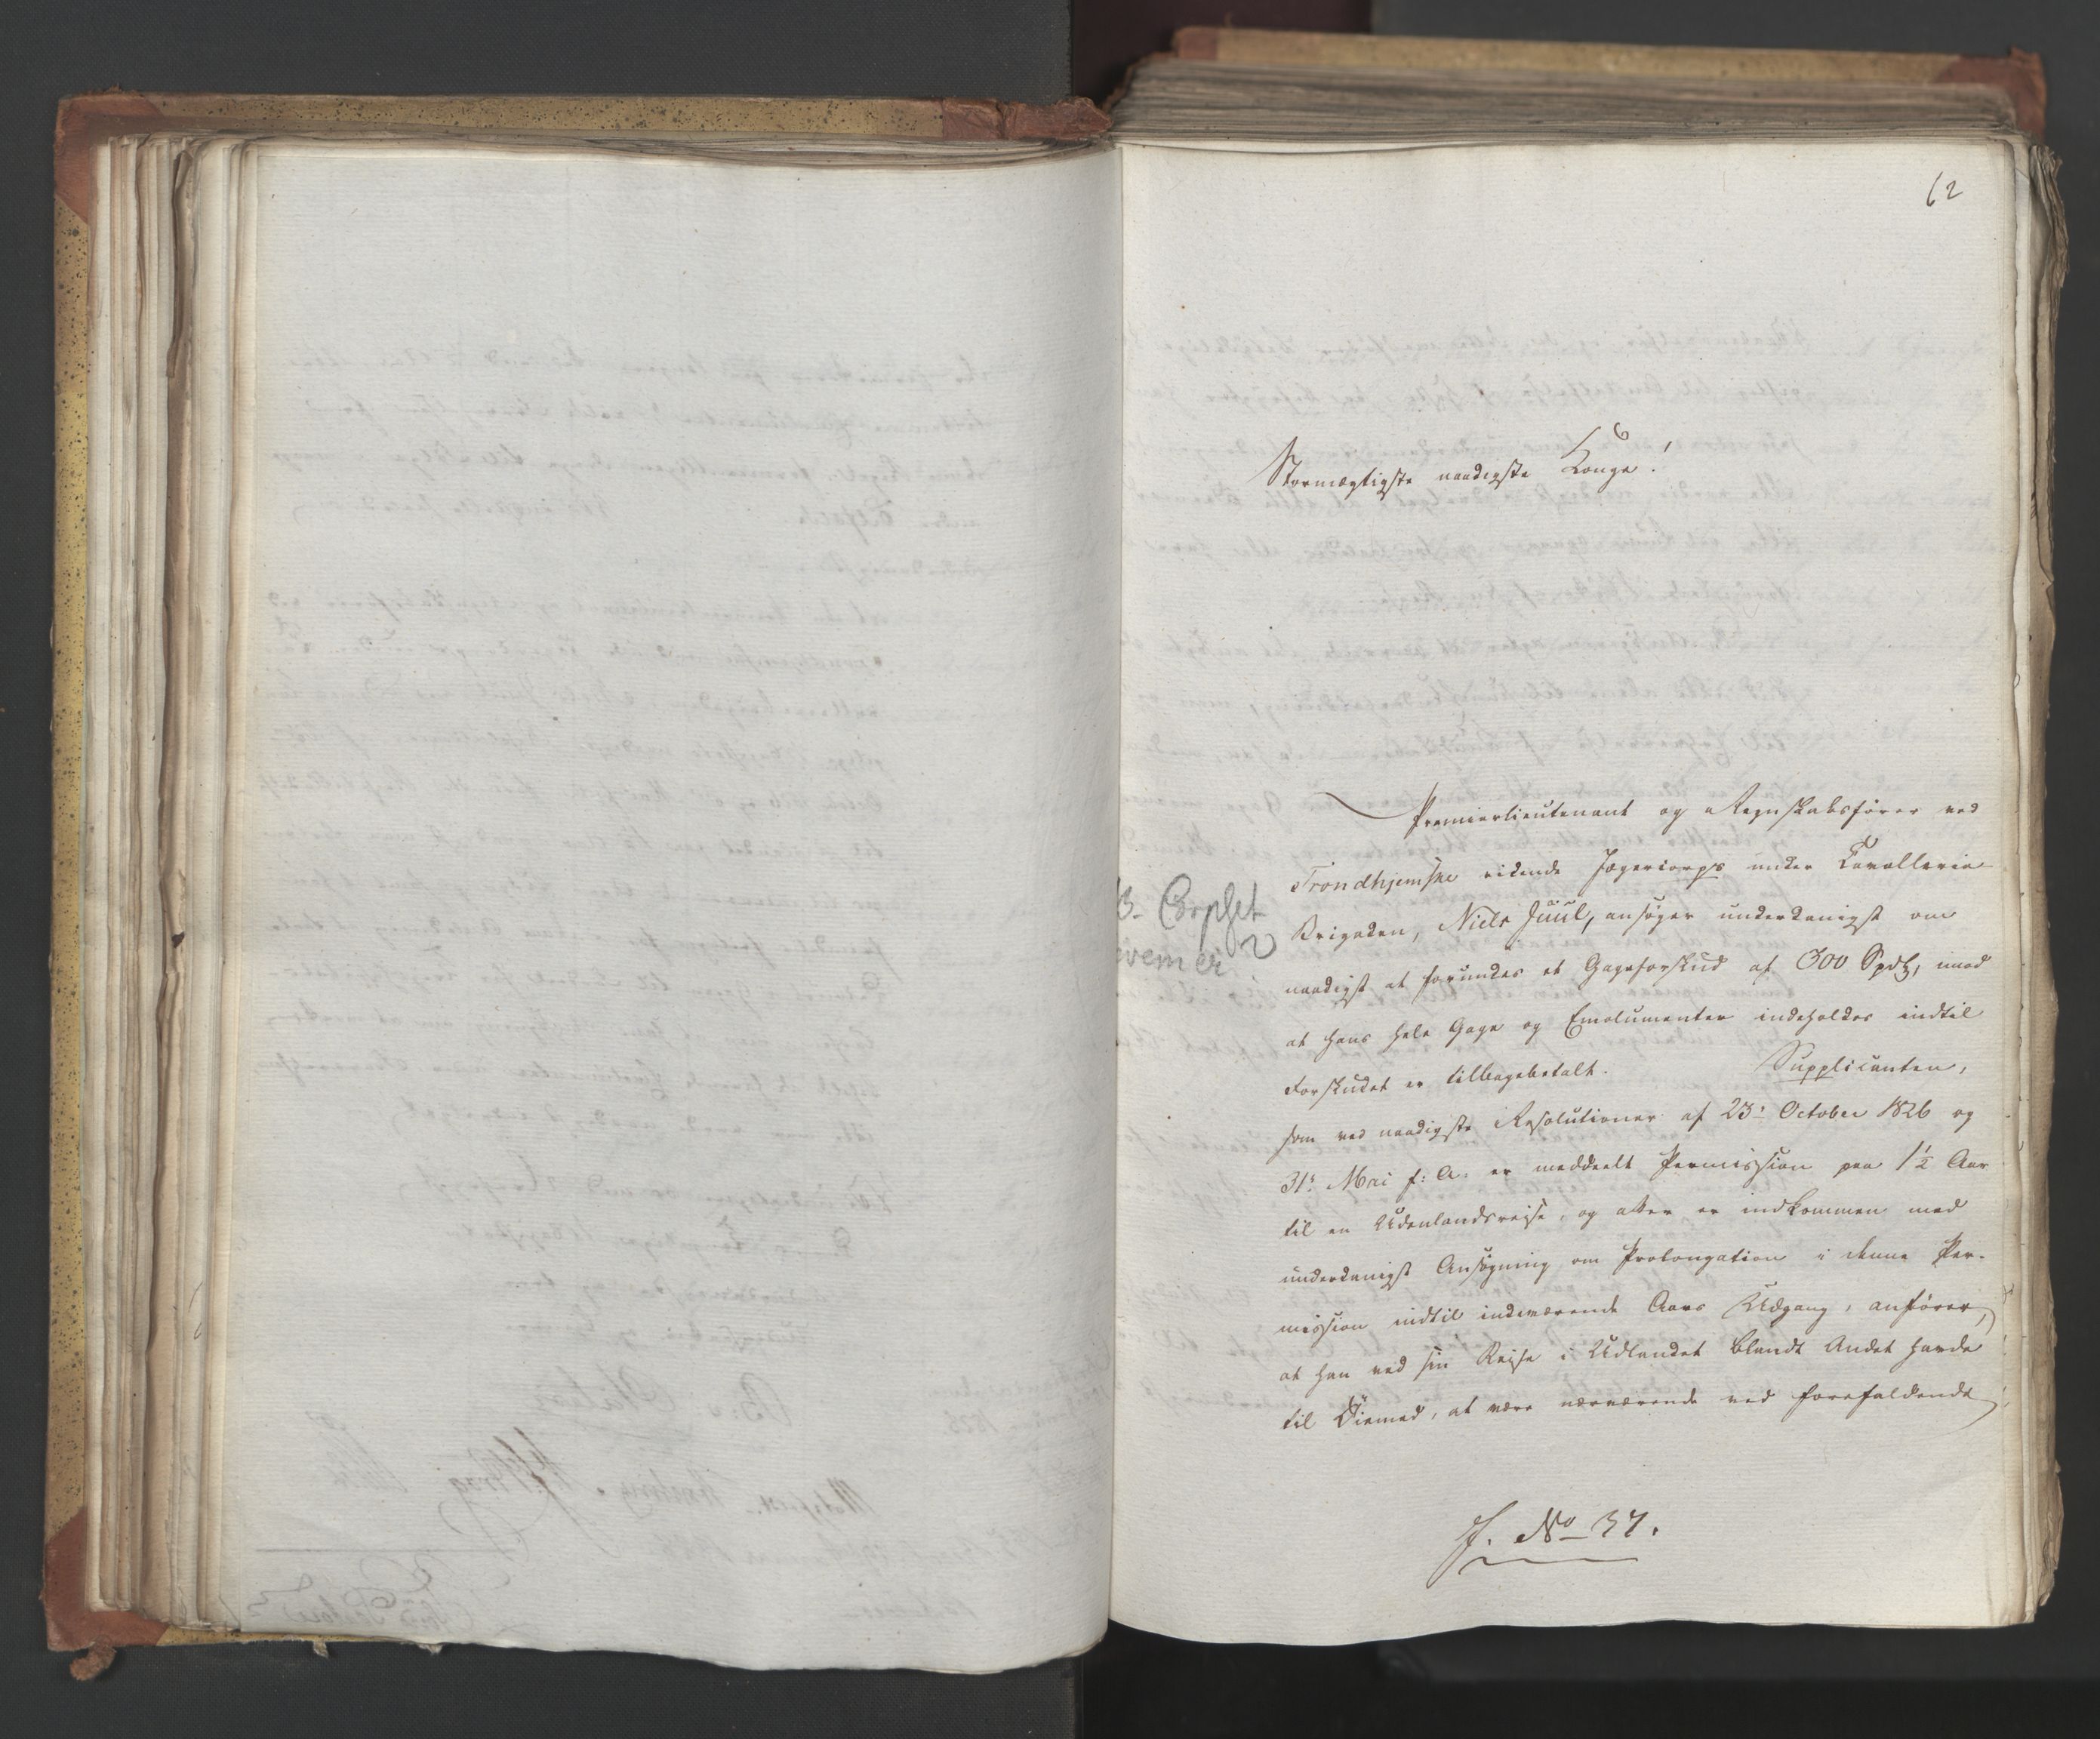 62
Stormægtigste naadigste Konge!
Premierlieutenant og Regnskabsfører ved
Trondhjemske ridende Jægercorps under Cavallerie
Brigaden, Niels Juul, ansøger underdanigst om
naadigst at forundes et Gageforskud af 300 Spd, imod
at hans hele Gage og Emolumenter indeholdes indtil
Forskudet er tilbagebetalt. Supplicanten,
som ved naadigste Resolutioner af 23' October 1826 og
31' Mai f: A. er meddeelt Permission paa 1½ Aar
til en Udenlandsreise, og atter er indkommen med
underdanigst Ansøgning om Prolongation i denne Per-
mission indtil indeværende Aars Udgang, anfører,
at han ved sin Reise i Udlandet blandt Andet havde
til Øiemed, at være nærværende ved forefaldende
Corpset
J. No 37.